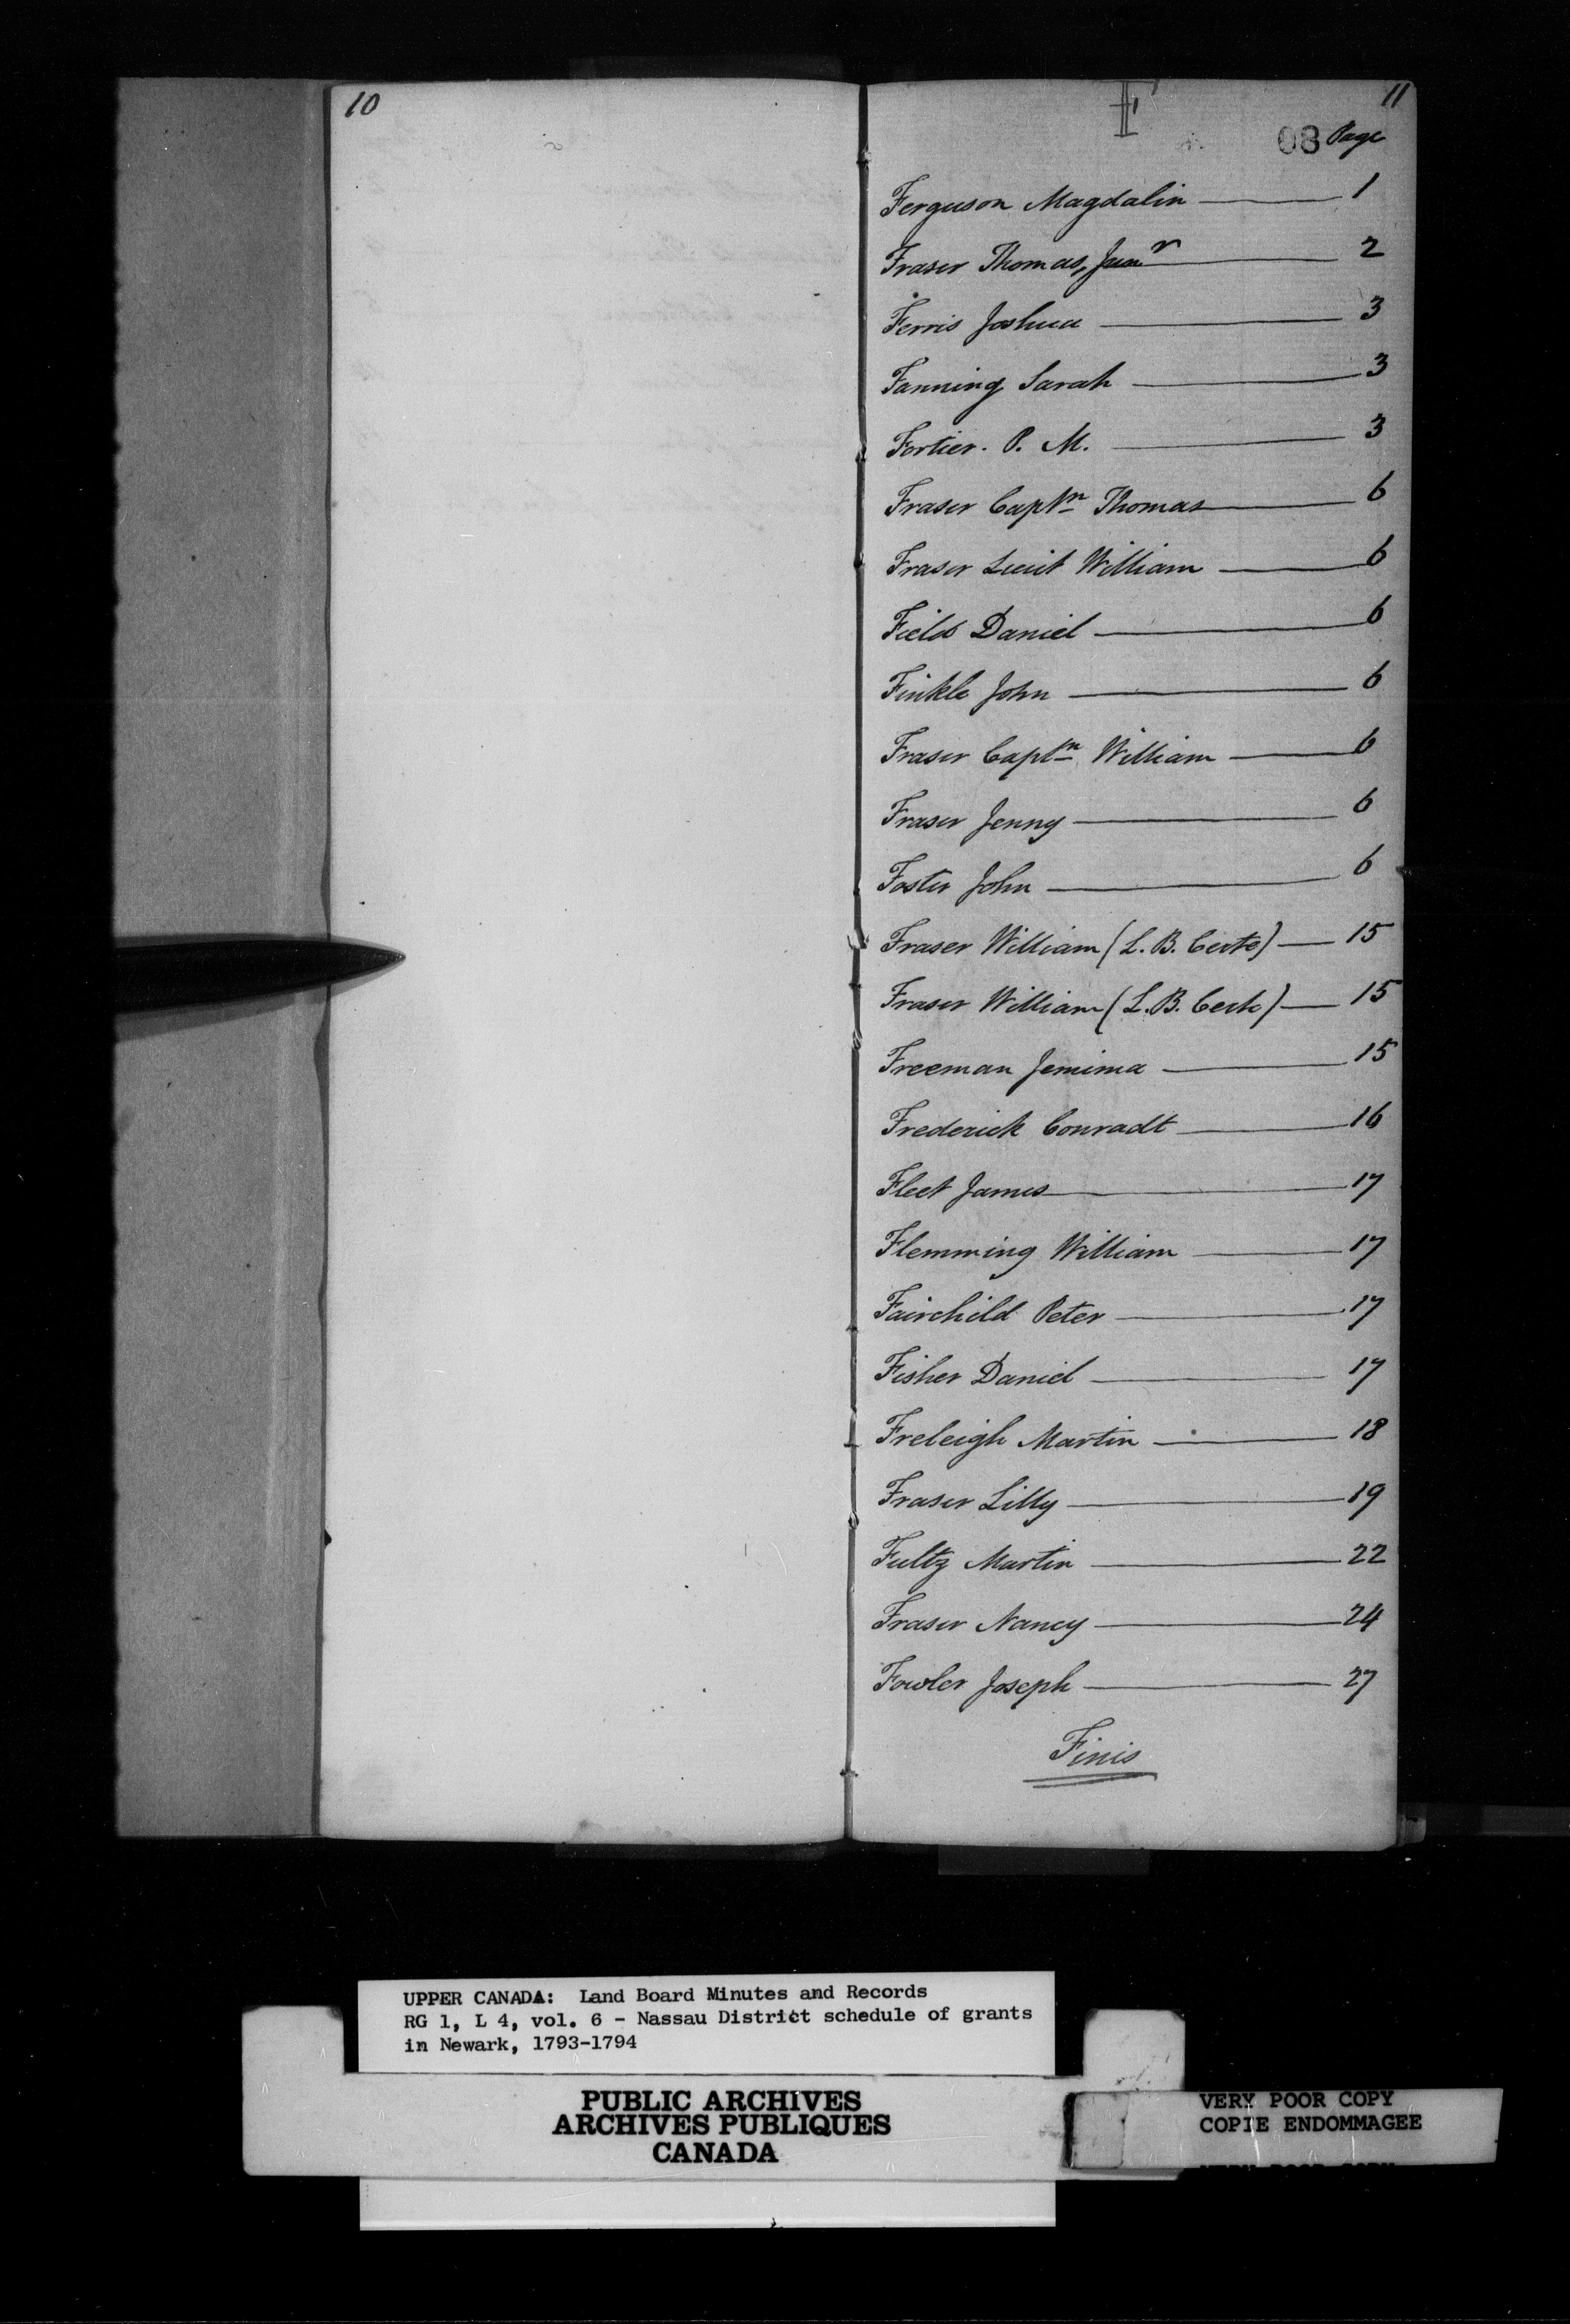 10
F
11
08 Page
Ferguson Magdalin 1
Fraser Thomas, Junr 2
Ferris Joshua 3
Fanning Sarah 3
Fortier. P. M. 3
Fraser Captn Thomas 6
Fraser Lieut William 6
Field Daniel 6
Finkle John 6
Fraser Captn William 6
Fraser Jenny 6
Foster John 6
Fraser William (L. B. Certe) 15
Fraser William (L. B. Certe) 15
Freeman Jemima 15
Frederick Conradt 16
Fleet James 17
Flemming William 17
Fairchild Peter 17
Fisher Daniel 17
Freleigh Martin 18
Fraser Lilly 19
Fultz Martin 22
Fraser Nancy 24
Fowler Joseph 27
Finis
UPPER CANADA: Land Board Minutes and Records
RG 1, L 4, vol. 6 - Nassau District schedule of grants
in Newark, 1793-1794
PUBLIC ARCHIVES
ARCHIVES PUBLIQUES
CANADA
VERY POOR COPY
COPIE ENDOMMAGEE